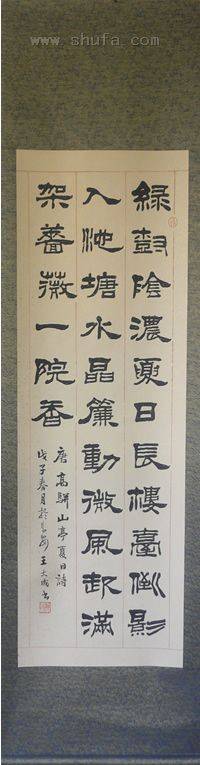 www.shufa.com
綠尌陰濃夏日長樓臺倒影
入池塘水晶簾動微風起滿
架薔薇一院香
唐高駢山亭夏日詩
戊子春月於長安王大成書